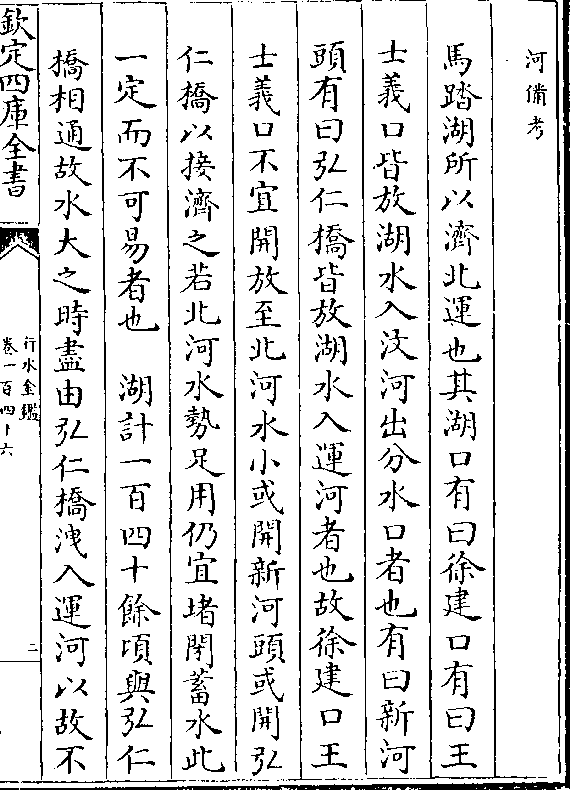 河備考
馬踏湖所以濟北運也其湖口有曰徐建口有曰王
士義口皆放湖水入汶河出分水口者也有曰新河
頭有曰弘仁橋皆放湖水入運河者也故徐建口王
士義口不宜開放至北河水小或開新河頭或開弘
仁橋以接濟之若北河水勢足用仍宜堵閉蓄水此
一定而不可易者也　湖計一百四十餘頃與弘仁
橋相通故水大之時盡由弘仁橋洩入運河以故不
欽定四庫全書
行水金鑑
卷一百四十六
二